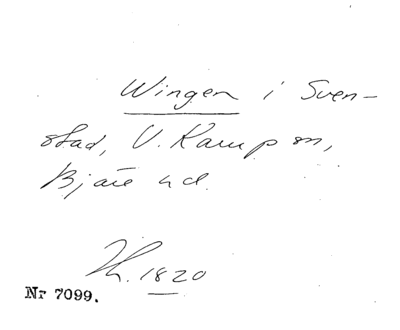 Wingen i Sven-
stad, V. Karup sn,
Bjäre hd.
1820
Nr 7099.